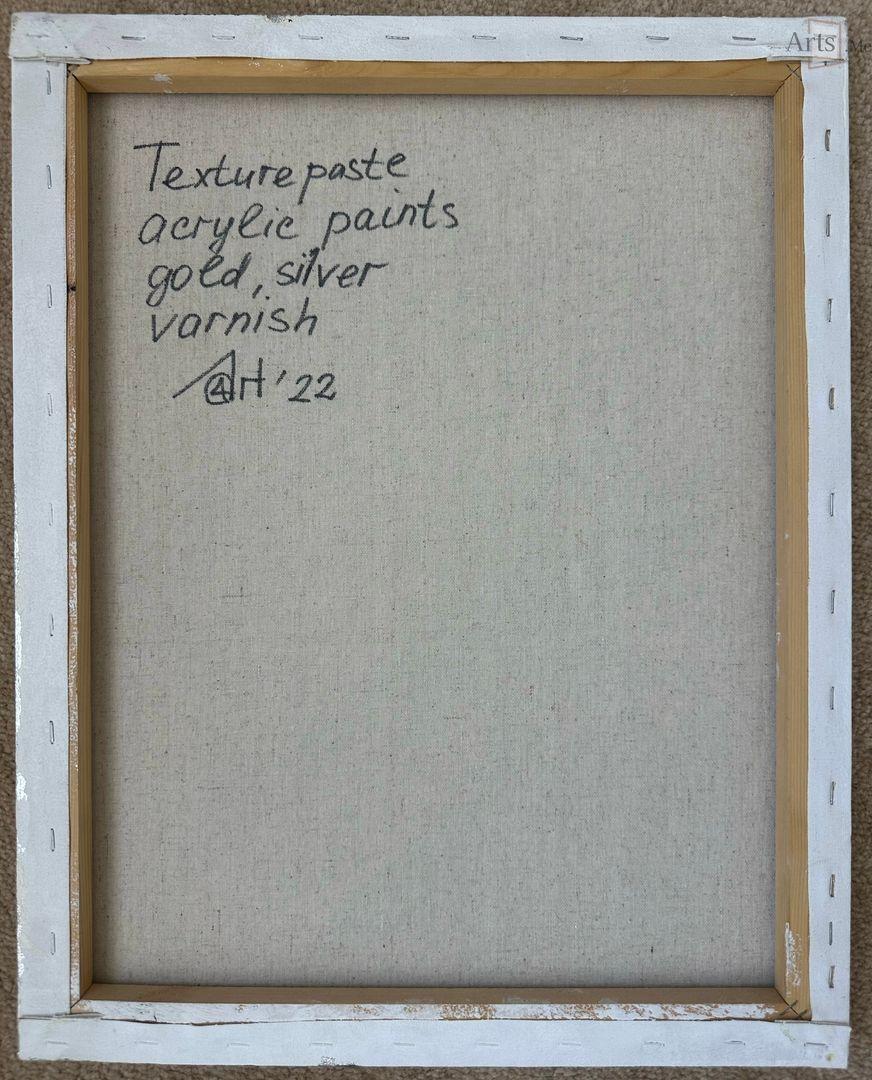 Arts
Texture paste
acrylic paints
gold, silver
varnish
Art '22